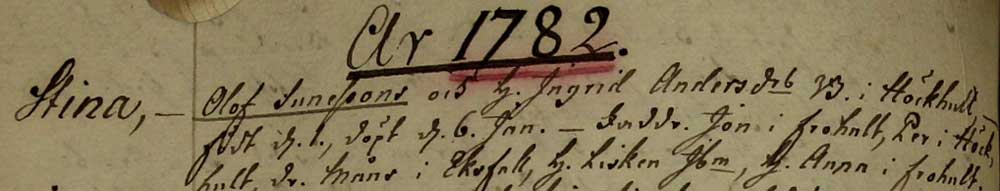 År 1782.
Stina, — Olof Sunessons och H. Ingrid Andersdr B. i Höckhult,
född d. 1., döpt d. 6. Jan. — Jon i Frohult, Per i Höck-
hult, dr. Måns i Ekefall, H. Lisken Ibm, H. Anna i Frohult.